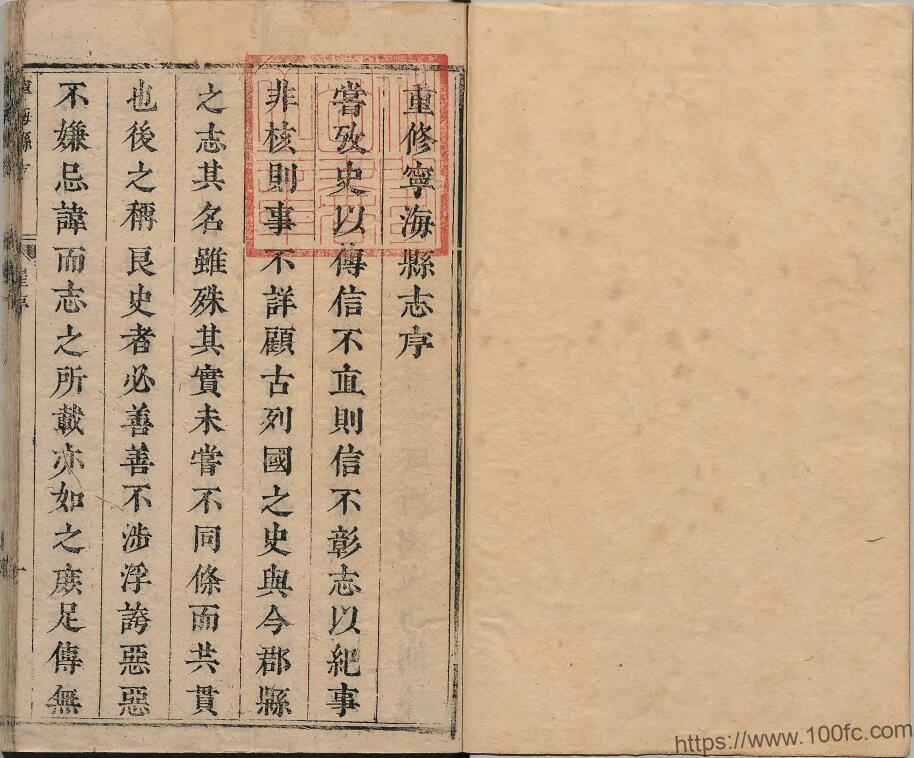 重修寧海縣志序
嘗攷史以傳信不直則信不彰志以紀事
非核則事不詳顧古列國之史與今郡縣
之志其名雖殊其實未嘗不同條而共貫
也後之稱良史者必善善不涉浮誇惡惡
不嫌忌諱而志之所載亦如之庻足傳無
寧海縣志
https://www.100fc.com